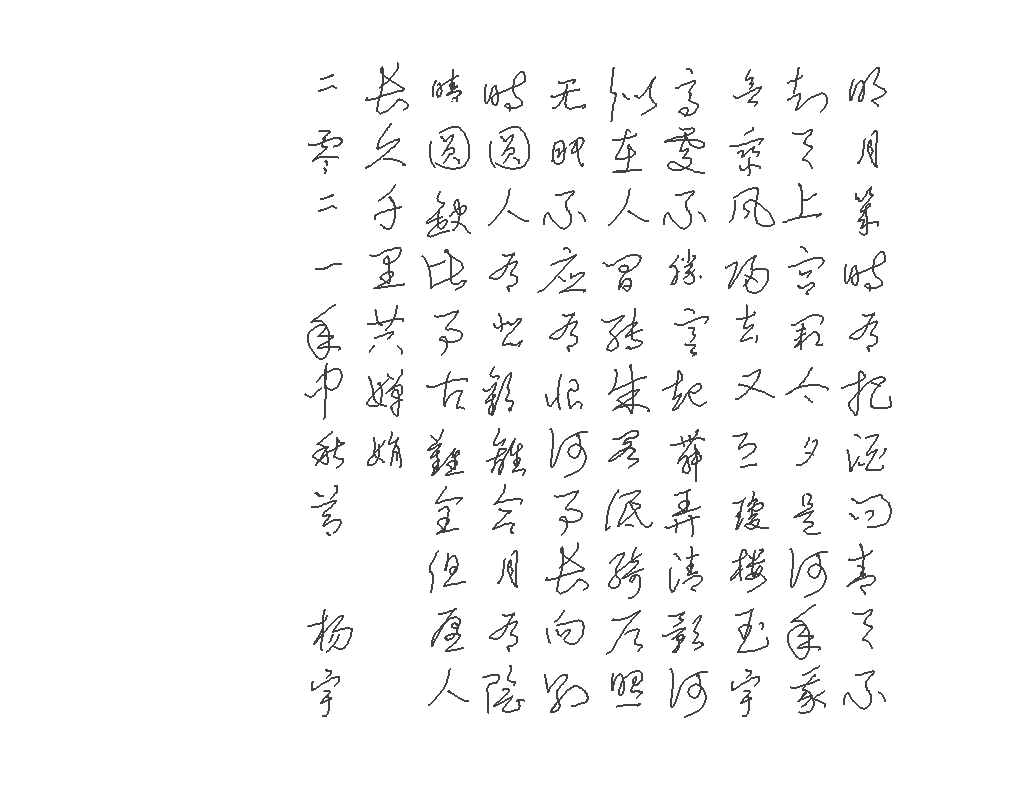 明月幾时有把酒问青天不
知天上宫阙今夕是何年我
欲乘风归去又恐瓊楼玉宇
高處不胜寒起舞弄清影何
似在人间转朱阁低绮户照
无眠不应有恨何事长向别
时圆人有悲歡離合月有陰
晴圆缺此事古難全但愿人
长久千里共婵娟
二零二一年中秋节 杨宇